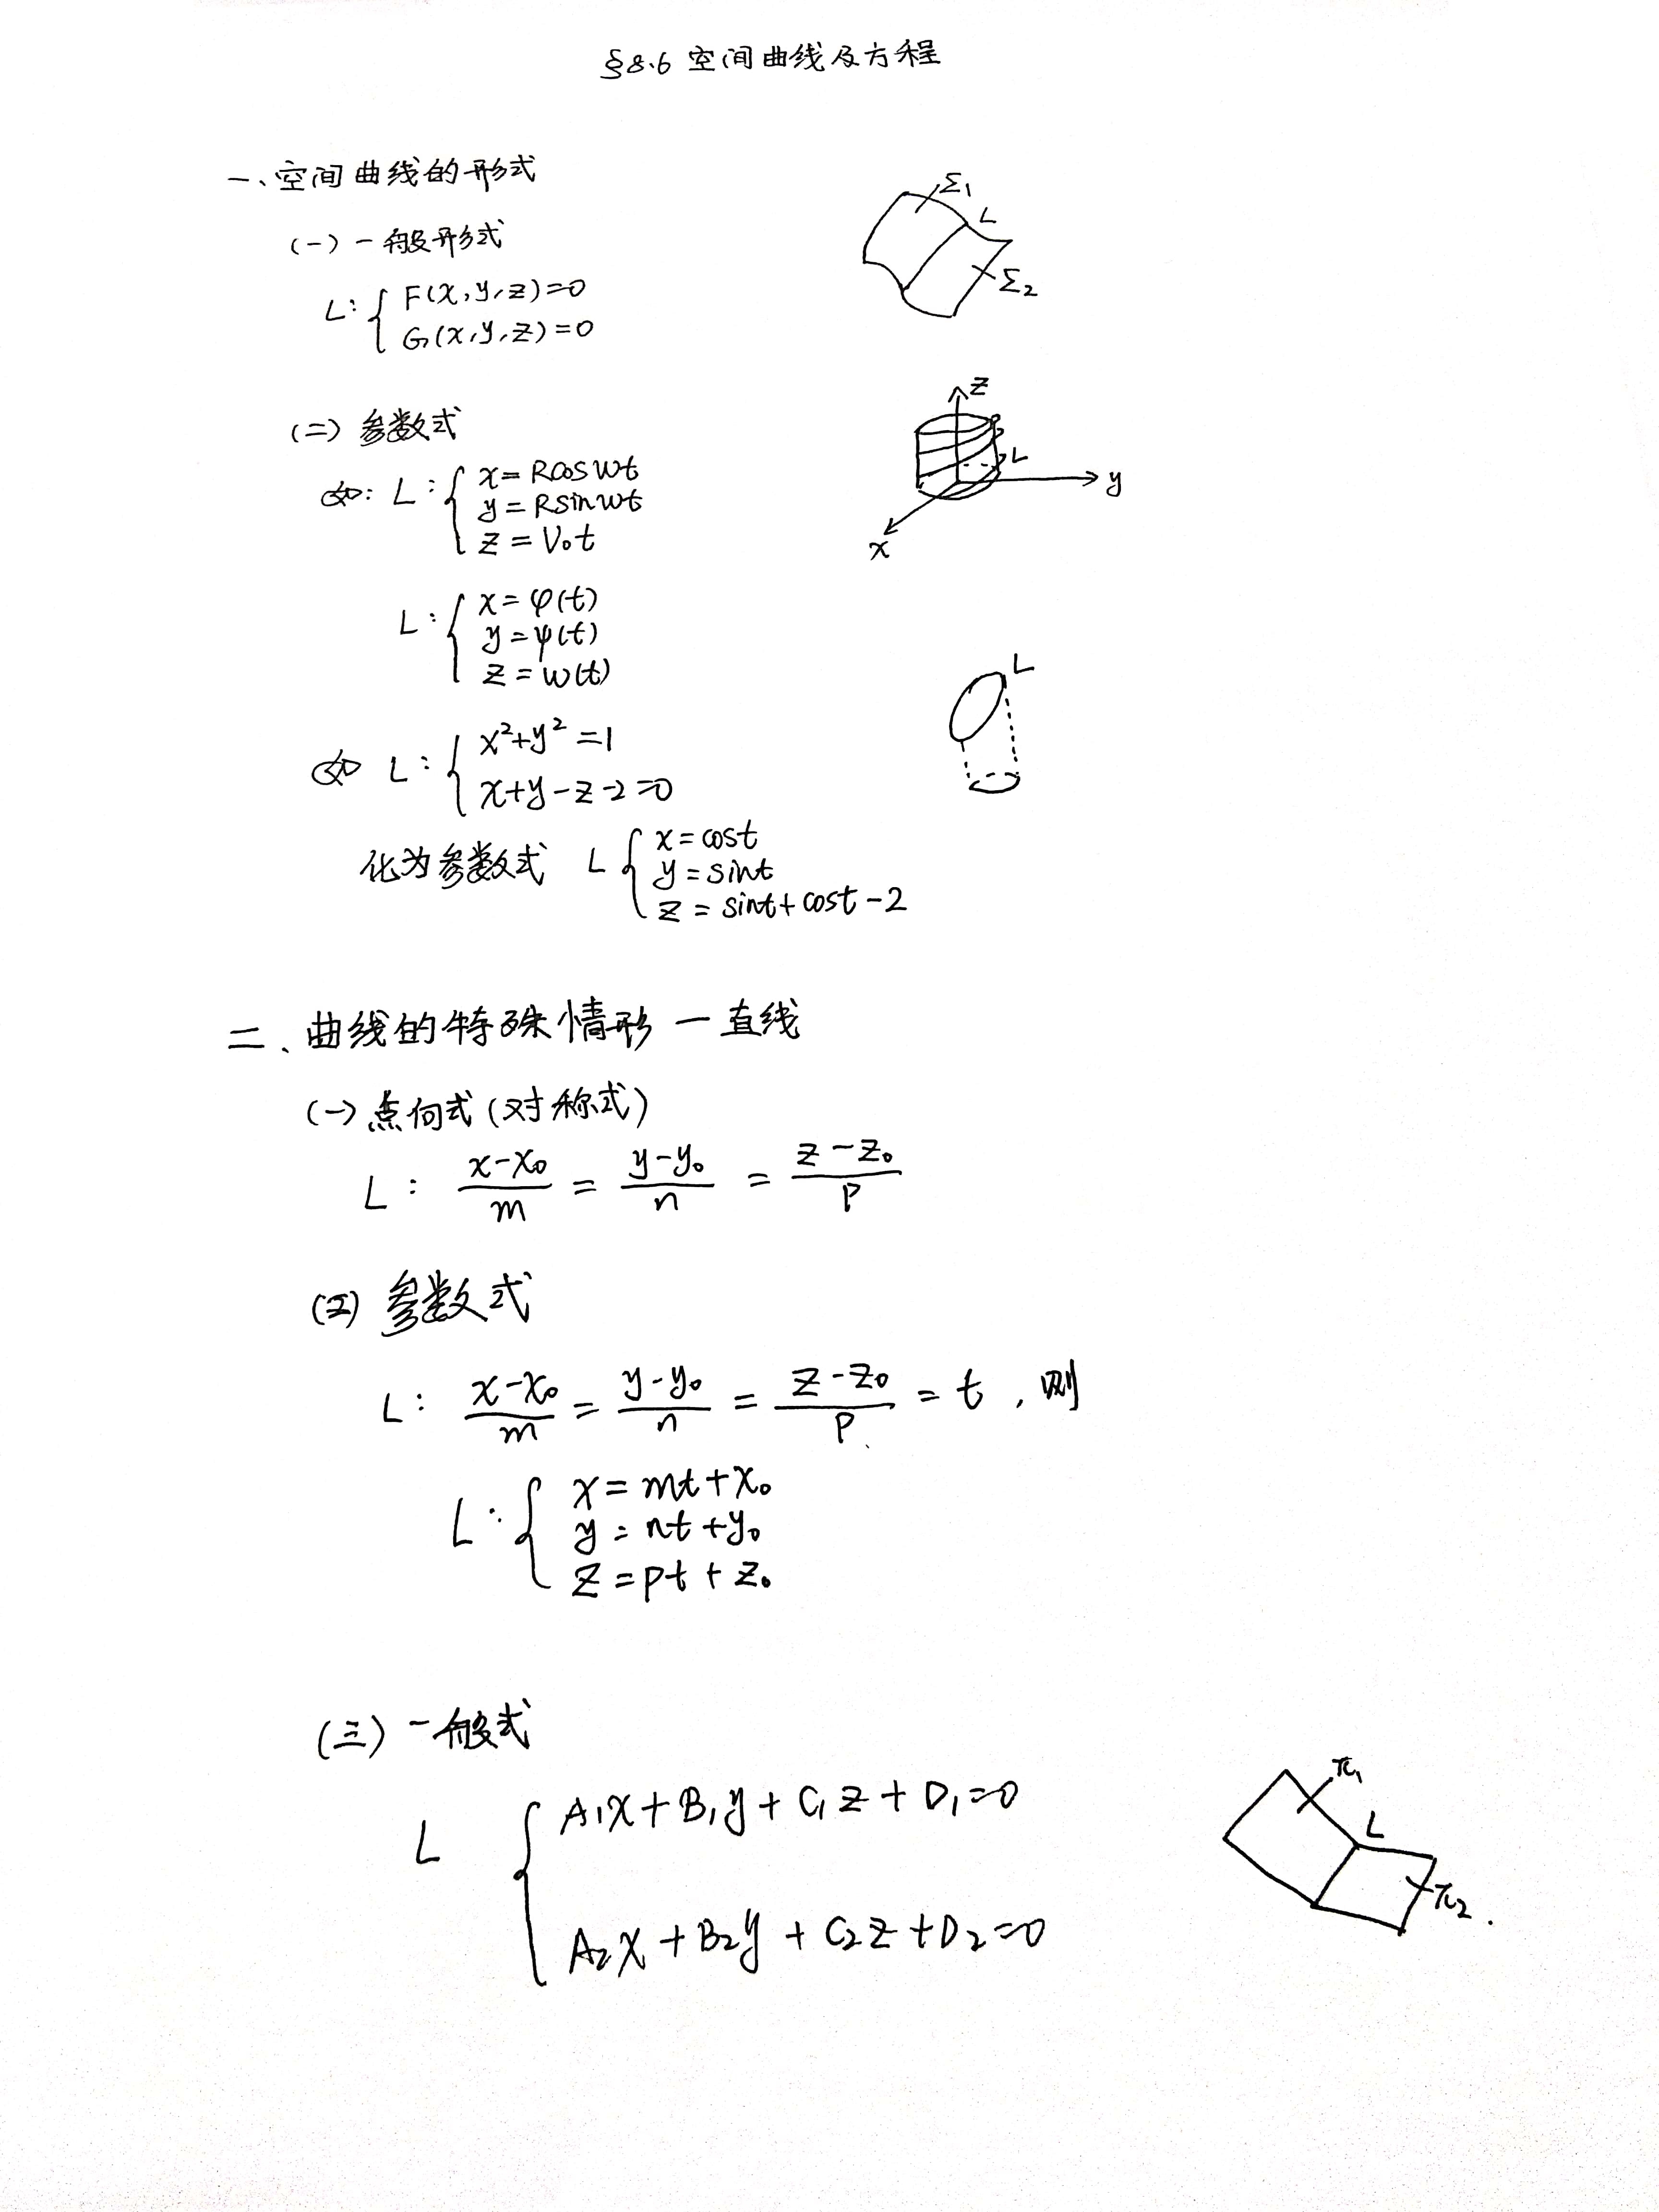 §8.6 空间曲线及方程
一、空间曲线的形式
(一) 一般形式
L: { F(x,y,z)=0
G(x,y,z)=0
Σ₁
L
Σ₂
(二) 参数式
如: L: { x=Rcoswt
y=Rsinwt
z=V₀t
z
L
y
x
L: { x=φ(t)
y=ψ(t)
z=w(t)
如 L: { x²+y²=1
x+y-z-2=0
L
化为参数式 L { x=cost
y=sint
z=sint+cost-2
二、曲线的特殊情形一直线
(一) 点向式(对称式)
L: (x-x₀)/m = (y-y₀)/n = (z-z₀)/p
(二) 参数式
L: (x-x₀)/m = (y-y₀)/n = (z-z₀)/p = t, 则
L: { x=mt+x₀
y=nt+y₀
z=pt+z₀
(三) 一般式
L { A₁x+B₁y+C₁z+D₁=0
A₂x+B₂y+C₂z+D₂=0
π₁
L
π₂.